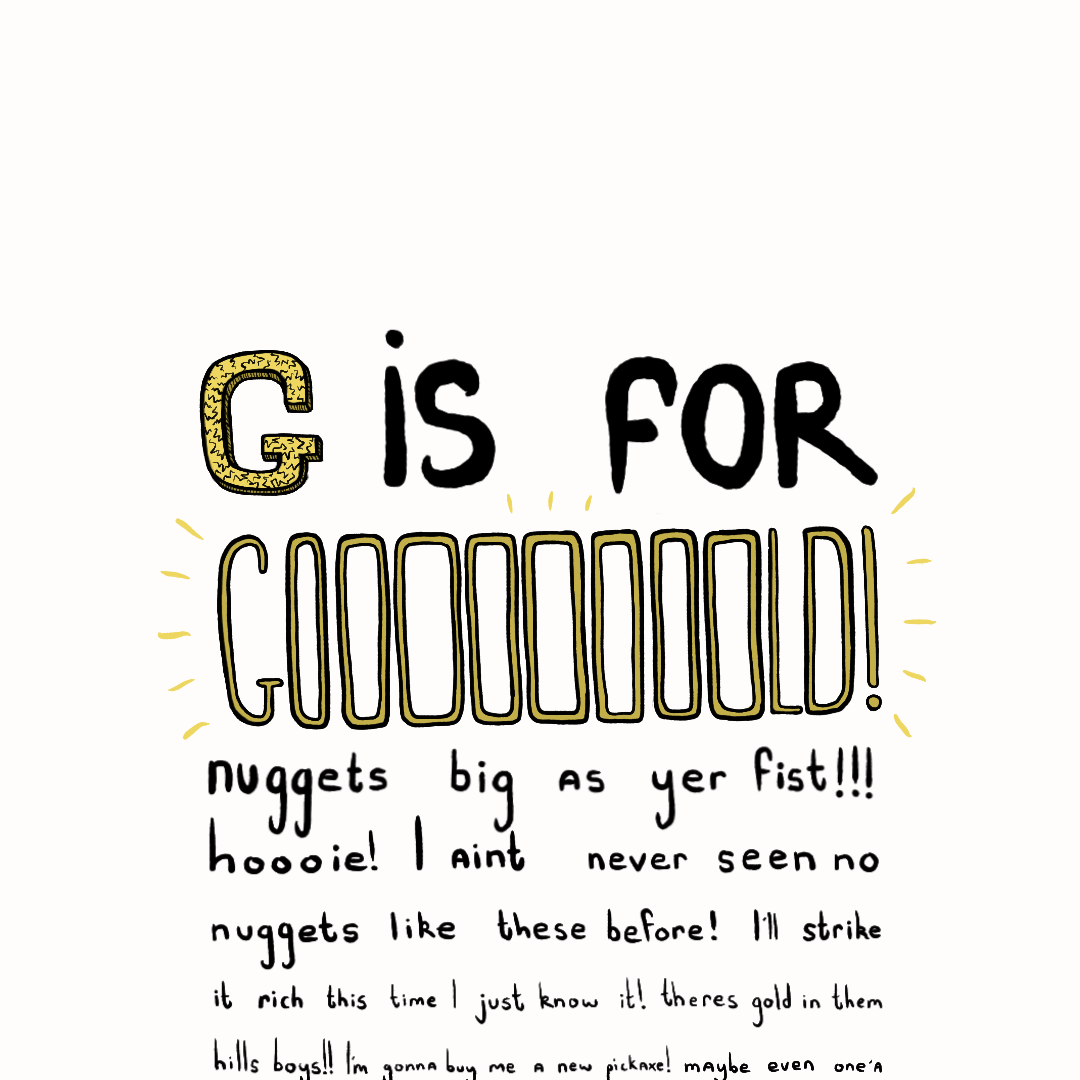 G is FOR
GOOOOOOOOLD!
nuggets big as yer fist!!!
hoooie! I aint never seen no
nuggets like these before! I'll strike
it rich this time I just know it! theres gold in them
hills boys!! I'm gonna buy me a new pickaxe! maybe even one'a